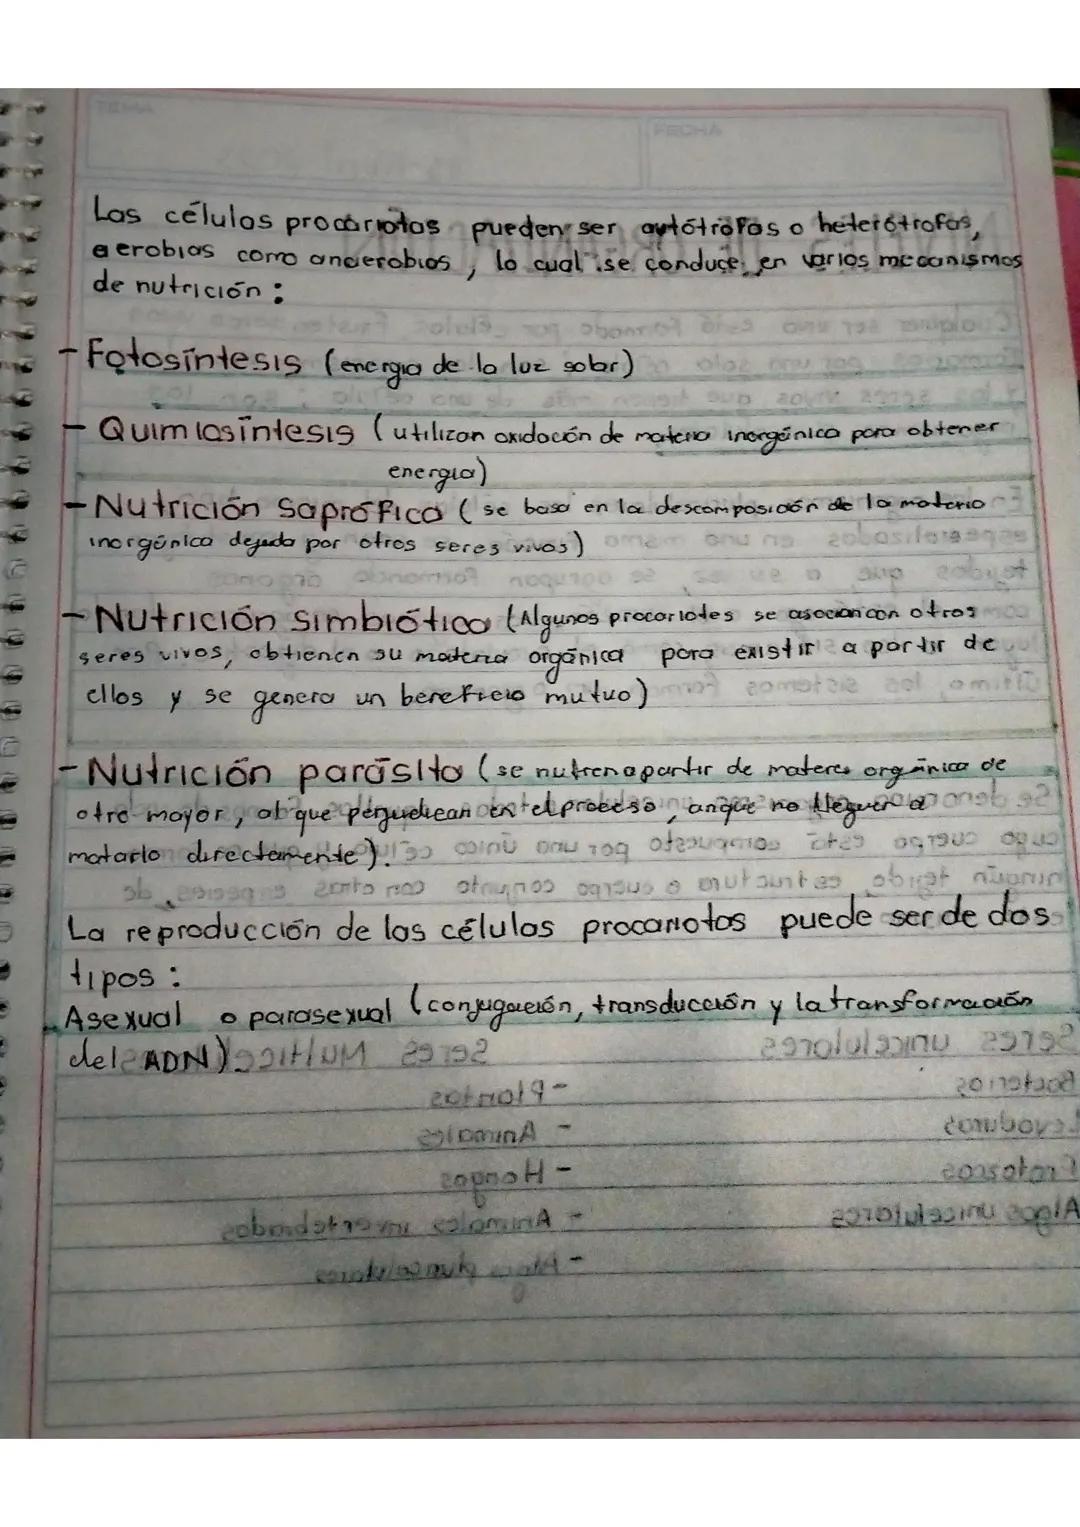 TEMA
FECHA
Las células procariotas pueden ser autótrofas o heterótrofas,
aerobias como anaerobios, lo cual se conduce en varios mecanismos
de nutrición:
- Fotosíntesis (energia de la luz solar)
- Quimiosíntesis (utilizan oxidación de materia inorgánica para obtener
energia)
- Nutrición Saprófica (se basa en la descomposición de la materia
inorgánica dejada por otros seres vivos)
- Nutrición simbiótica (Algunos procariotes se asocian con otros
seres vivos, obtienen su materia orgánica para existir a partir de
ellos y se genera un beneficio mutuo)
- Nutrición parásita (se nutren a partir de materes orgánica de
otro mayor, al que perjudican en el proceso, anque no lleguen a
matarlo directamente).
La reproducción de las células procariotas puede ser de dos
tipos:
Asexual o parasexual (conjugación, transducción y la transformación
del ADN)